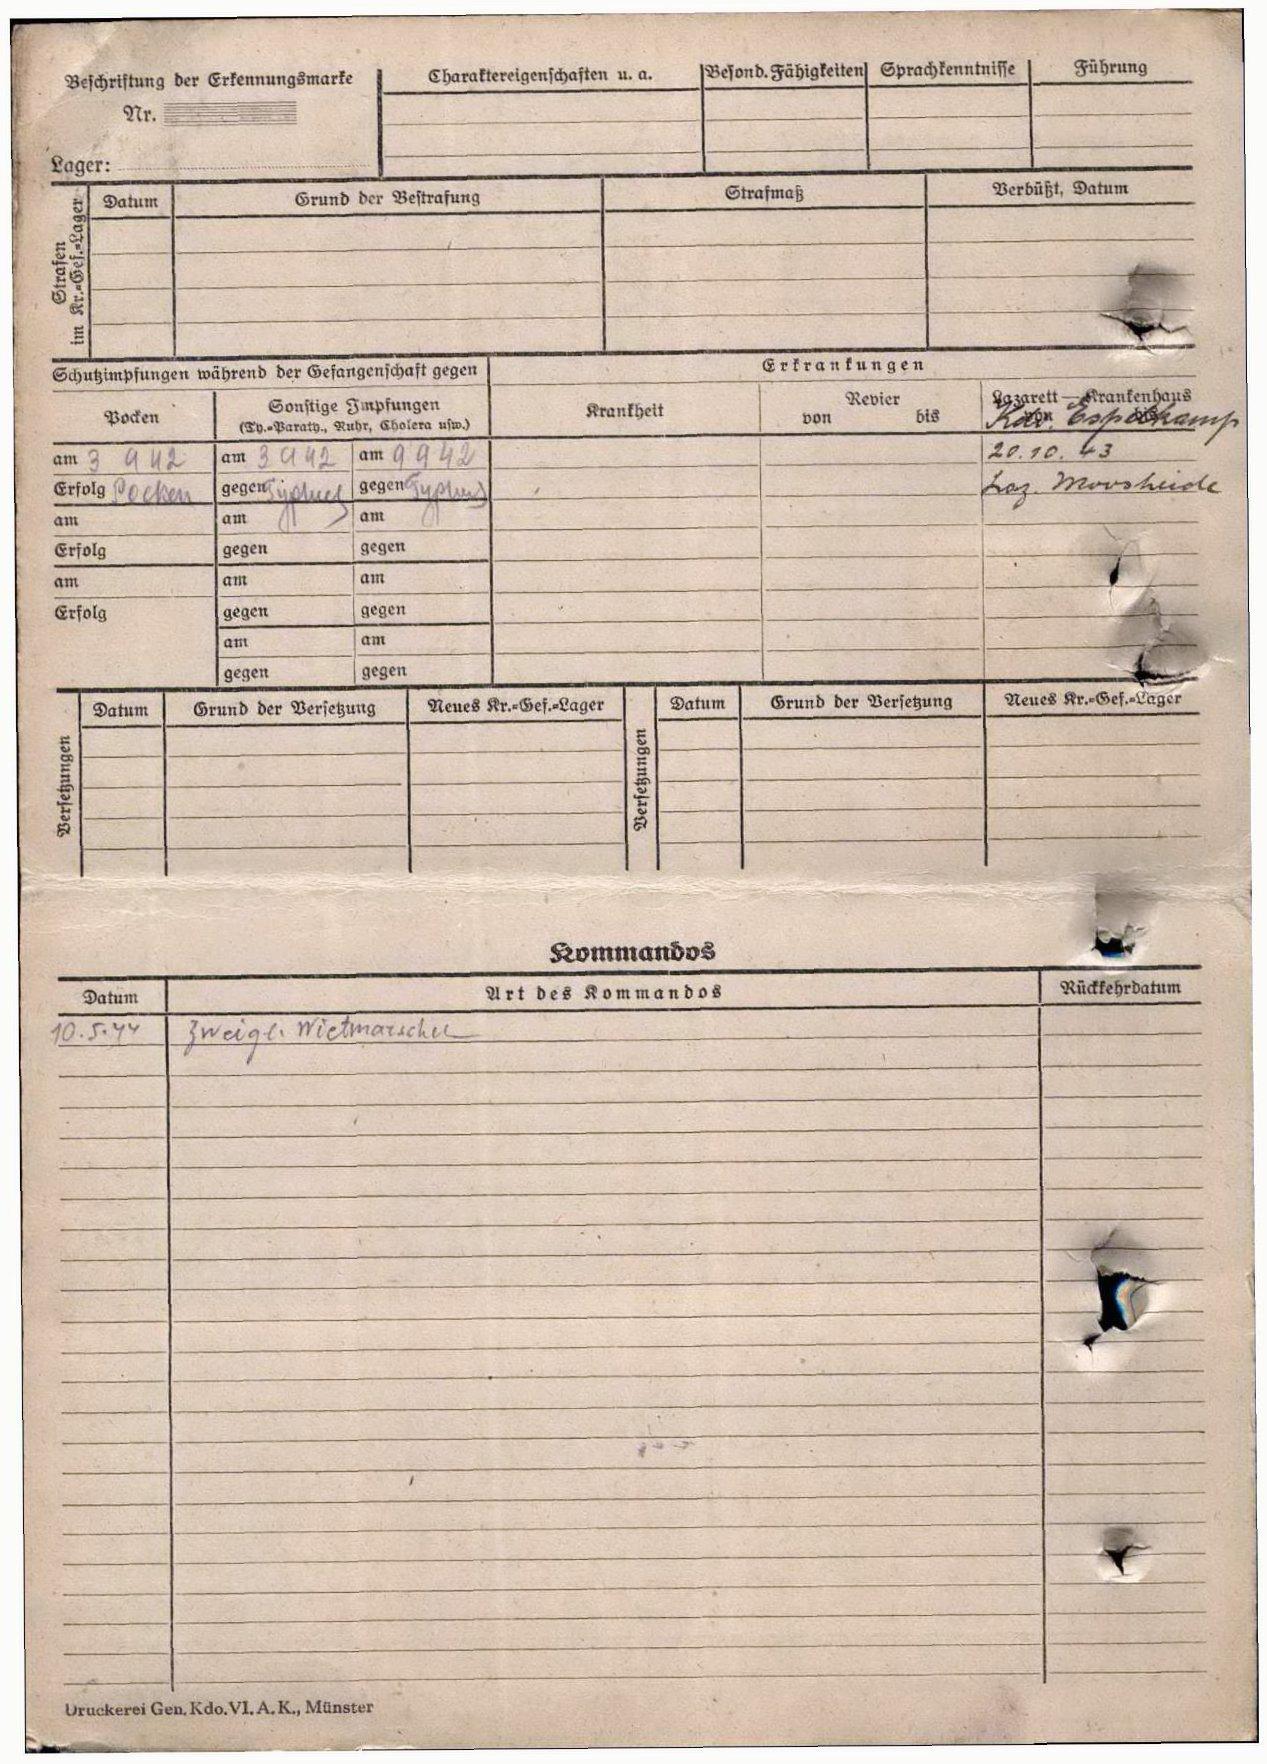 Beschriftung der Erkennungsmarke
Nr.
Lager:
Charaktereigenschaften u. a.
Besond. Fähigkeiten
Sprachkenntnisse
Führung
Strafen im Kr.=Gef.=Lager
Datum
Grund der Bestrafung
Strafmaß
Verbüßt, Datum
Schutzimpfungen während der Gefangenschaft gegen
Erkrankungen
Pocken
Sonstige Impfungen
(Ty.=Paraty., Ruhr, Cholera usw.)
Krankheit
Revier
von bis
Lazarett — Krankenhaus
von bis
Kdo. Espelkamp
am 3 9 42 am 3 9 42 am 9 9 42
20.10.43
Erfolg Pocken gegen Typhus gegen Typhus
Laz. Moosheide
am am am
Erfolg gegen gegen
am am am
Erfolg gegen gegen
am am
gegen gegen
Versetzungen
Datum
Grund der Versetzung
Neues Kr.=Gef.=Lager
Versetzungen
Datum
Grund der Versetzung
Neues Kr.=Gef.=Lager
Kommandos
Datum
Art des Kommandos
Rückkehrdatum
10.5.44 Zweigl. Wietmarschen
Druckerei Gen. Kdo. VI. A. K., Münster